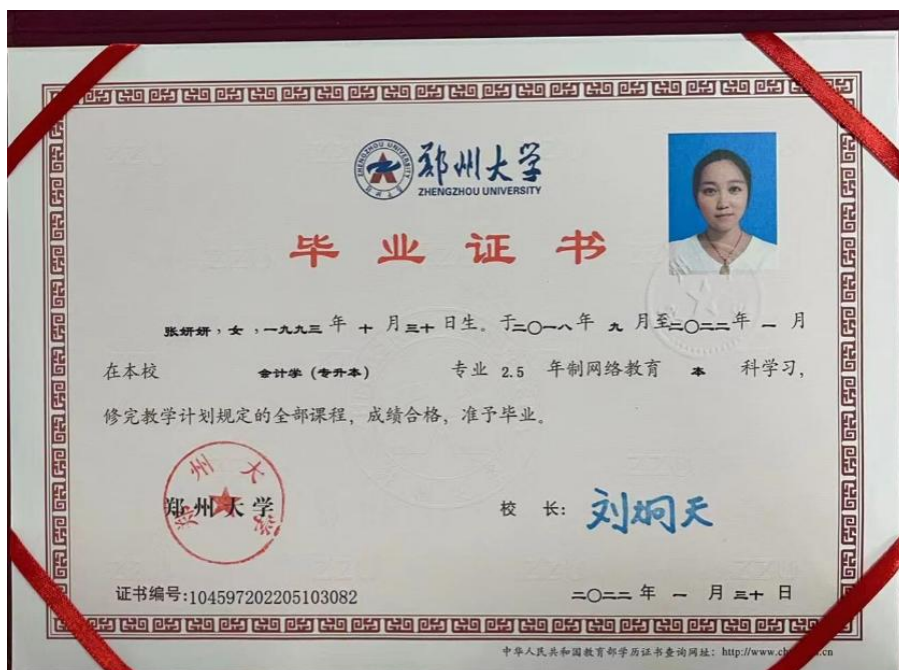 郑州大学
ZHENGZHOU UNIVERSITY
毕业证书
张妍妍，女，一九九三年十月三十日生。于二〇一八年九月至二〇二二年一月
在本校 会计学（专升本） 专业 2.5 年制网络教育 本 科学习，
修完教学计划规定的全部课程，成绩合格，准予毕业。
郑州大学
郑州大学 校 长：刘炯天
证书编号:104597202205103082 二〇二二年 一 月 三十 日
中华人民共和国教育部学历证书查询网址：http://www.ch